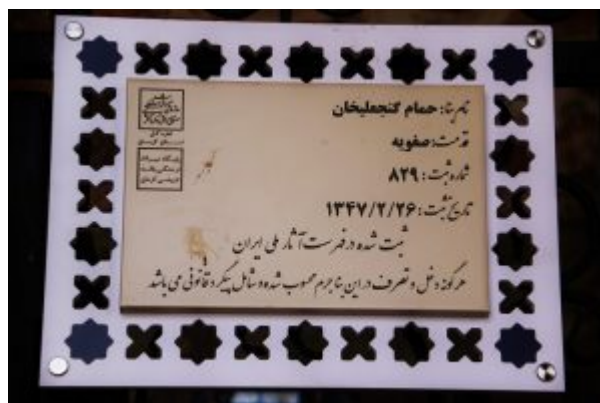 نام بنا: حمام گنجعلیخان
قدمت: صفویه
شماره ثبت: ۸۲۹
تاریخ ثبت: ۱۳۴۷/۲/۲۶
ثبت شده در فهرست آثار ملی ایران
هر گونه دخل و تصرف در این بنا جرم محسوب شده و شامل پیگرد قانونی می باشد